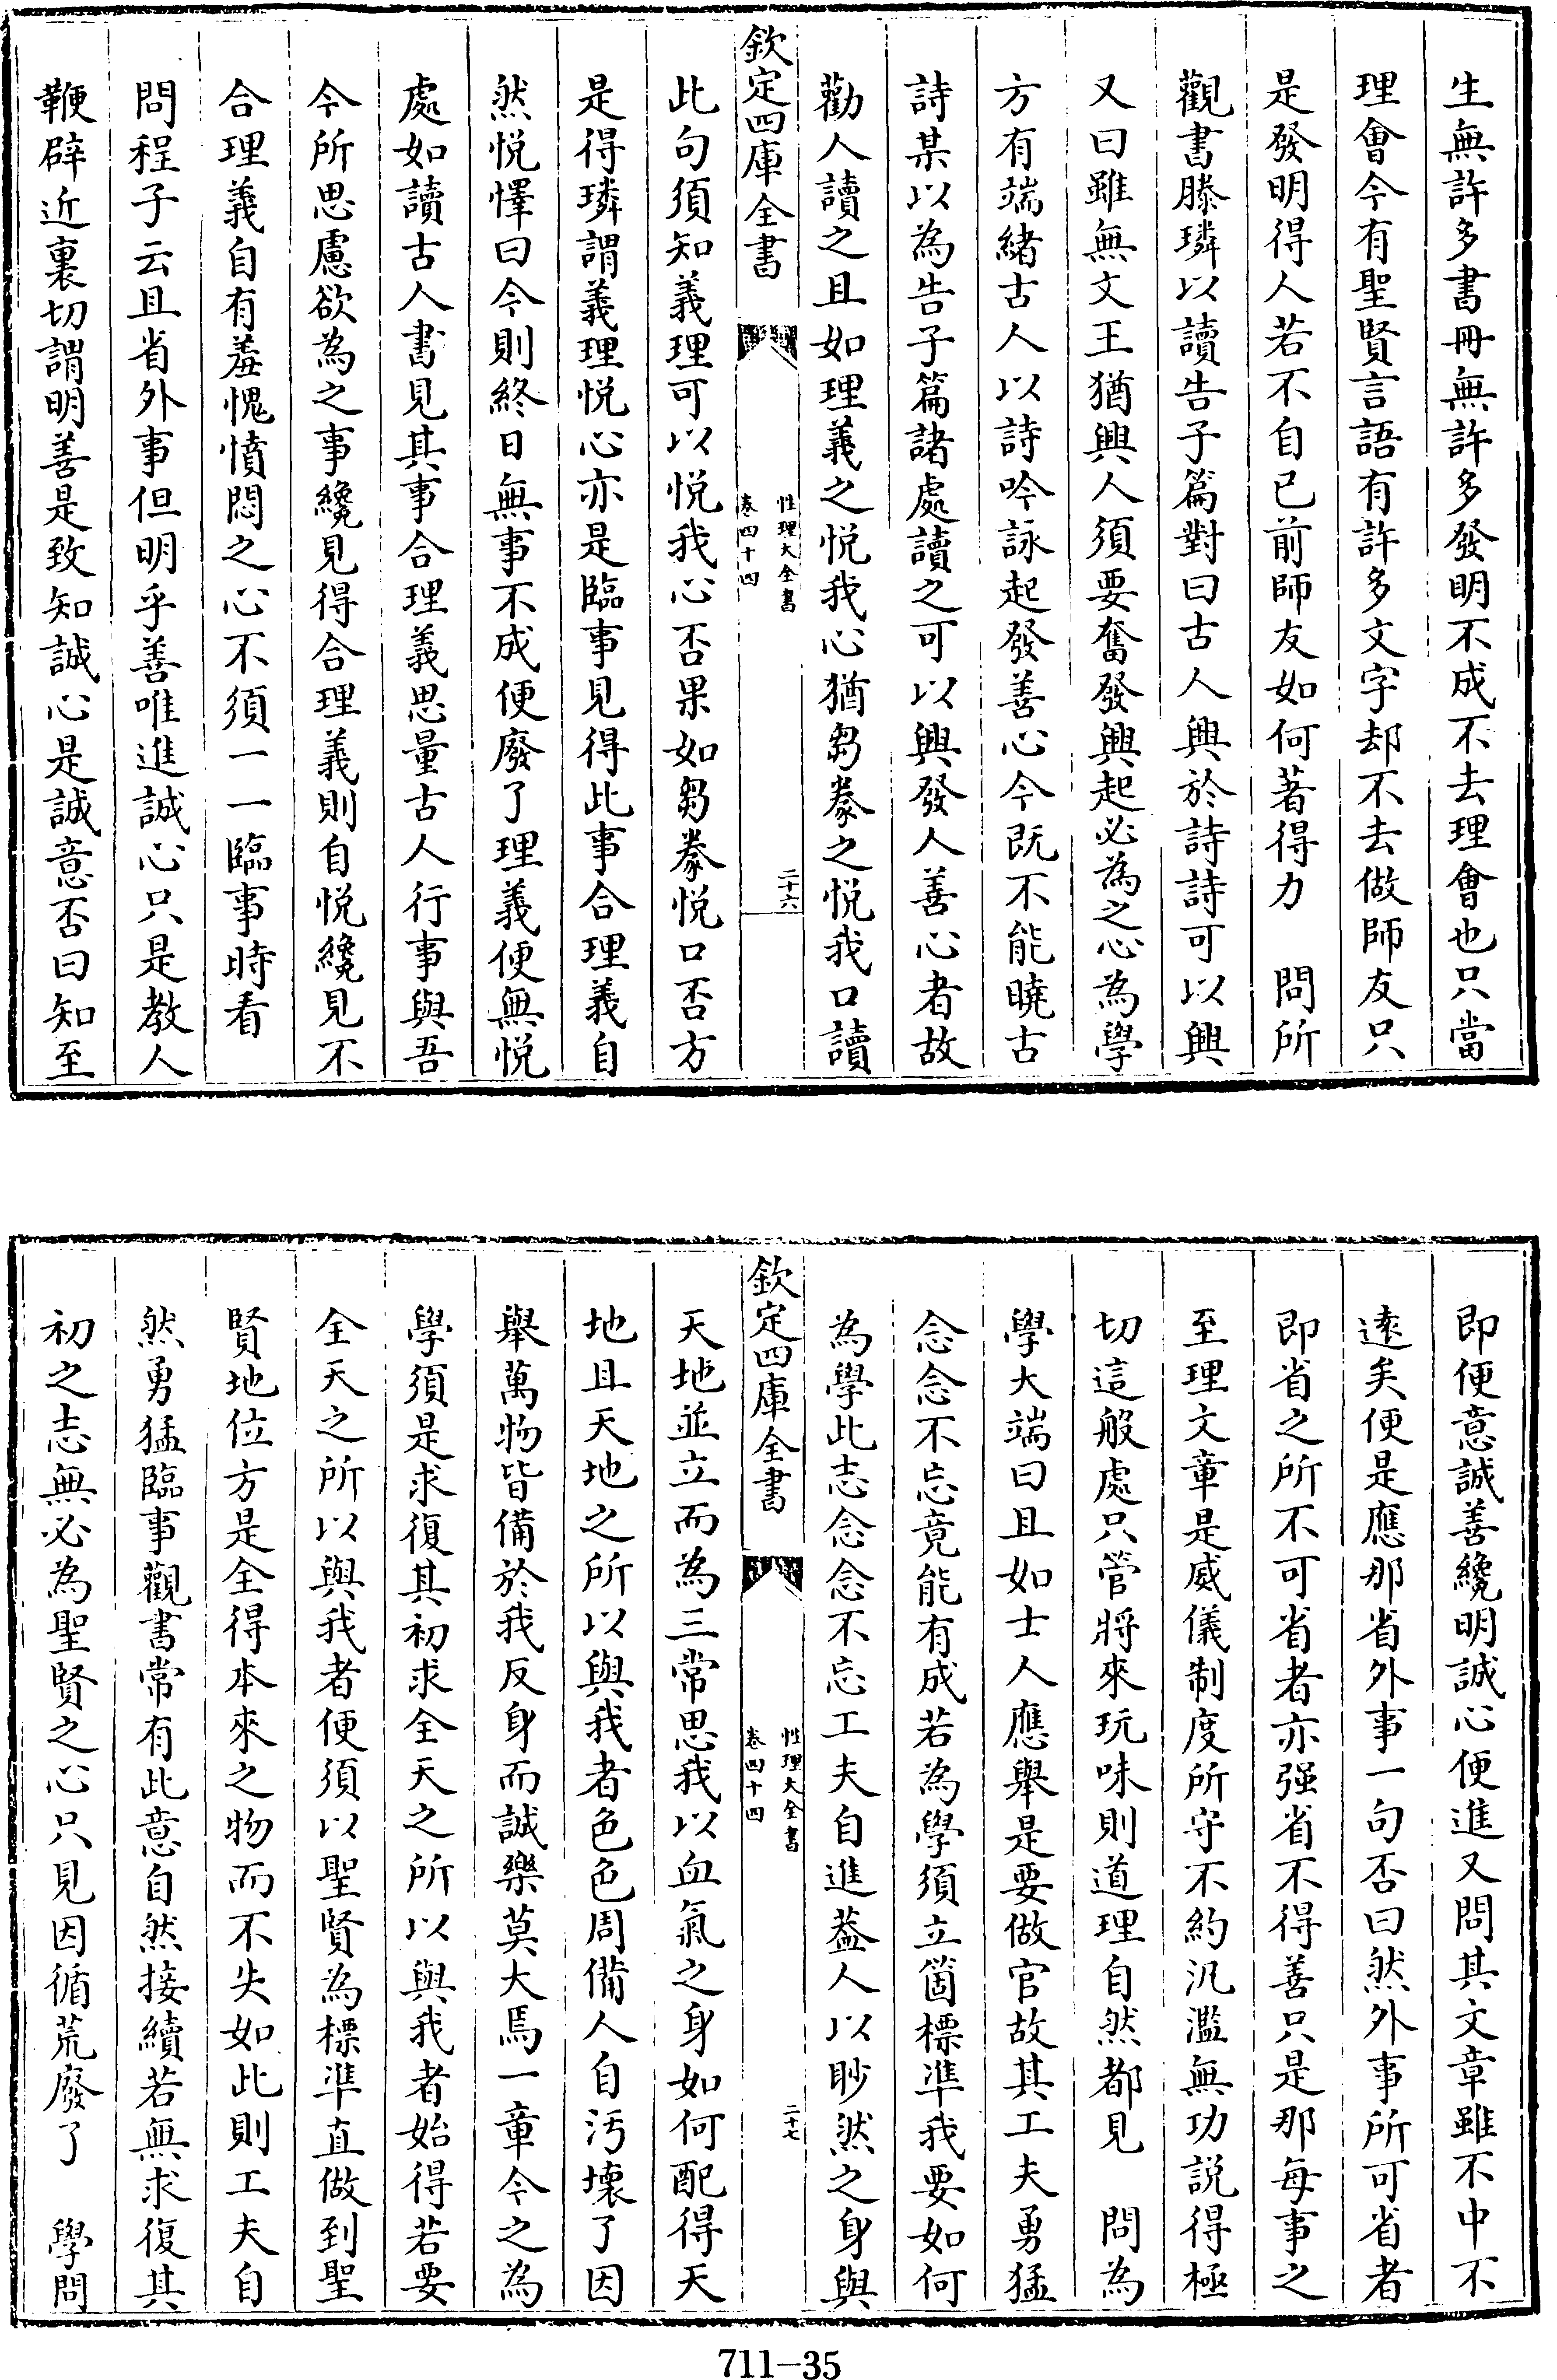 生無許多書冊無許多發明不成不去理會也只當
理會今有聖賢言語有許多文字却不去做師友只
是發明得人若不自已前師友如何著得力　問所
觀書滕璘以讀告子篇對曰古人興於詩詩可以興
又曰雖無文王猶興人須要奮發興起必為之心為學
方有端緒古人以詩吟詠起發善心今既不能曉古
詩某以為告子篇諸處讀之可以興發人善心者故
勸人讀之且如理義之悅我心猶芻豢之悅我口讀
欽定四庫全書
性理大全書
卷四十四
二十六
此句須知義理可以悅我心否果如芻豢悅口否方
是得璘謂義理悅心亦是臨事見得此事合理義自
然悅懌曰今則終日無事不成便廢了理義便無悅
處如讀古人書見其事合理義思量古人行事與吾
今所思慮欲為之事纔見得合理義則自悅纔見不
合理義自有羞愧憤悶之心不須一一臨事時看
問程子云且省外事但明乎善唯進誠心只是教人
鞭辟近裏切謂明善是致知誠心是誠意否曰知至
即便意誠善纔明誠心便進又問其文章雖不中不
遠矣便是應那省外事一句否曰然外事所可省者
即省之所不可省者亦强省不得善只是那每事之
至理文章是威儀制度所守不約汎濫無功說得極
切這般處只管將來玩味則道理自然都見　問為
學大端曰且如士人應舉是要做官故其工夫勇猛
念念不忘竟能有成若為學須立箇標準我要如何
為學此志念念不忘工夫自進葢人以眇然之身與
欽定四庫全書
性理大全書
卷四十四
二十七
天地並立而為三常思我以血氣之身如何配得天
地且天地之所以與我者色色周備人自汚壞了因
舉萬物皆備於我反身而誠樂莫大焉一章今之為
學須是求復其初求全天之所以與我者始得若要
全天之所以與我者便須以聖賢為標準直做到聖
賢地位方是全得本來之物而不失如此則工夫自
然勇猛臨事觀書常有此意自然接續若無求復其
初之志無必為聖賢之心只見因循荒廢了　學問
711-35